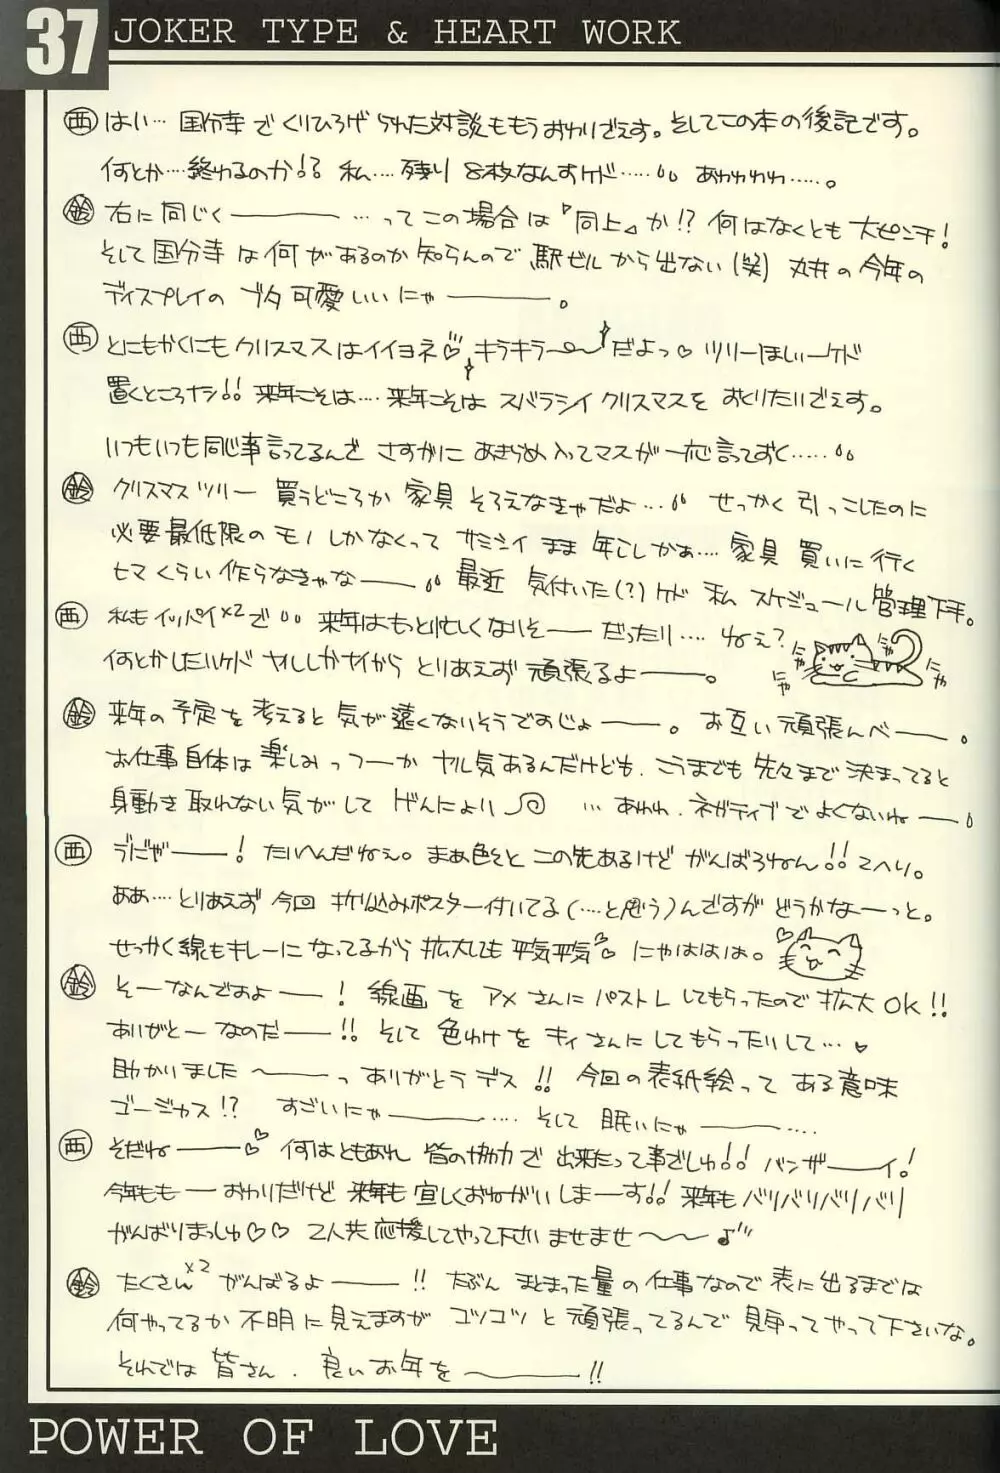 37 JOKER TYPE & HEART WORK
西 はい… 国分寺でくりひろげられた対談ももうおわりでえす。そしてこの本の後記です。
何とか…終わるのか!? 私…残り8枚なんすケド…… あわわわわ……。
鈴 右に同じく――― …ってこの場合は『同上』か!? 何はなくとも大ピンチ!
そして国分寺は何があるのか知らんので駅ビルから出ない(笑) 丸井の今年の
ディスプレイのブタ可愛いいにゃ―――。
西 とにもかくにもクリスマスはイイヨネ♡ キラキラ〜〜だよっ♡ ツリーほしいーケド
置くところナシ!! 来年こそは…来年こそはスバラシイクリスマスをおくりたいでえす。
いつもいつも同じ事言ってるんでさすがにあきらめ入ってマスが一応言っておく……
鈴 クリスマスツリー買うどころか家具そろえなきゃだよ… せっかく引っこしたのに
必要最低限のモノしかなくってサミシイまま年こしかぁ… 家具買いに行く
ヒマくらい作らなきゃな―― 最近気付いた(?)ケド私スケジュール管理下手。
西 私もイッパイ×2で 来年はもっと忙しくないぞ――だったり… ねぇ?
にゃ にゃ にゃ にゃ
何とかしたいケドヤルしかナイからとりあえず頑張るよ―――。
鈴 来年の予定を考えると気が遠くなりそうですじょ――。お互い頑張んべ――。
お仕事自体は楽しみっつーかヤル気あるんだけども、こうまでも先々まで決まってると
身動き取れない気がしてげんにょり …あわわ、ネガティブでよくないね――
西 うにゃ――! たいへんだねぇ。まあ色々とこの先あるけどがんばろねん!! 2人り。
ああ…とりあえず今回折り込みポスター付いてる(…と思う)んですがどうかなーっと。
せっかく線もキレーになってるから拡大しても平気平気♡ にゃははは。
鈴 そーなんですよ――! 線画をアメさんにパストレしてもらったので拡大OK!!
ありがと―なのだ――!! そして色わけをキィさんにしてもらったりして…♥
助かりました〜――っ ありがとうデス!! 今回の表紙絵ってある意味
ゴージャス!? すごいにゃ―――… そして眠いにゃ―――…
西 そだね――♡ 何はともあれ皆の協力で出来たって事でしゅ!! バンザ――イ!
今年もも―おわりだけど来年も宜しくおねがいしまーす!! 来年もバリバリバリバリ
がんばりまっしゅ♡♡ 2人共応援してやって下さいませませ〜〜♪
鈴 たくさん×2がんばるよ――!! たぶんまとまった量の仕事なので表に出るまでは
何やってるか不明に見えますがコツコツと頑張ってるんで見守ってやって下さいな。
それでは皆さん、良いお年を―――!!
POWER OF LOVE